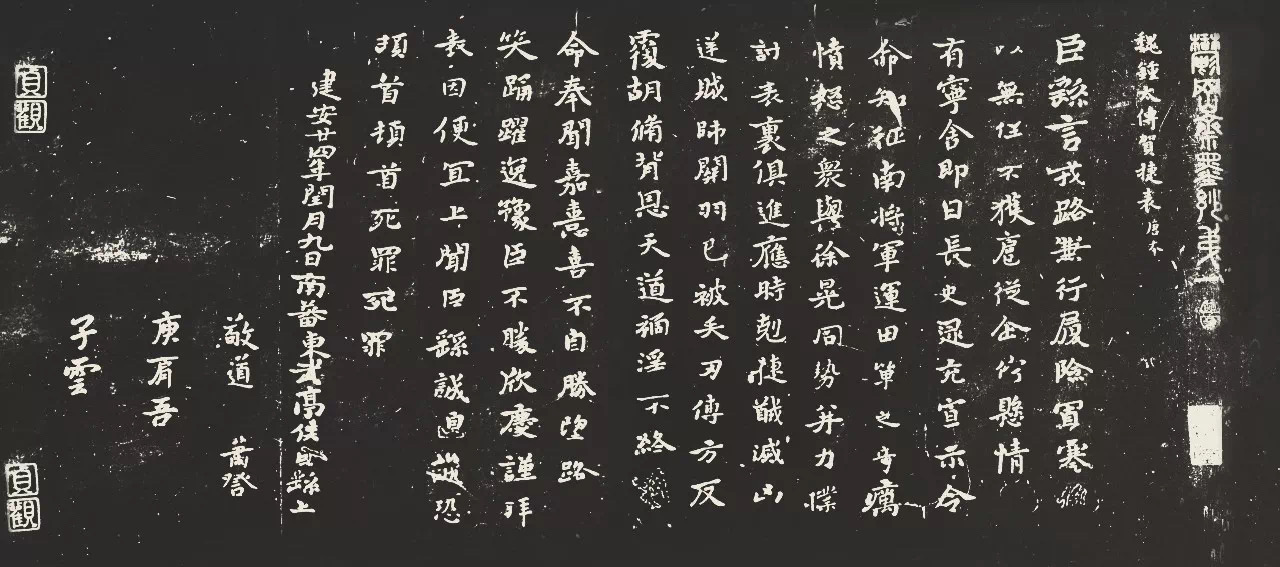 鬱岡齋墨妙第一
魏鍾太傅賀捷表唐本
臣繇言戎路兼行履險冒寒
以無任不獲扈從企佇懸情
有寧舍即日長史逯充宣示令
命知征南將軍運田單之奇厲
憤怒之衆與徐晃同勢并力撲
討表裏俱進應時剋捷馘滅凶
逆賊帥關羽已被矢刃傅方反
覆胡脩背恩天道禍淫不終
命奉聞嘉憙喜不自勝望路
笑踊躍逸豫臣不勝欣慶謹拜
表因便宜上聞臣繇誠惶誠恐
頓首頓首死罪死罪
建安廿四年閏月九日南蕃東武亭侯臣繇上
敬道 蕭詧
庾肩吾
子雲
貞觀
貞觀